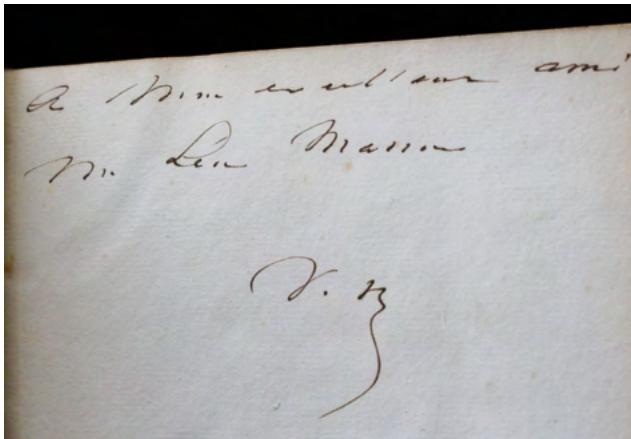 A Mon excellent ami
M. Léon Masson
V. H